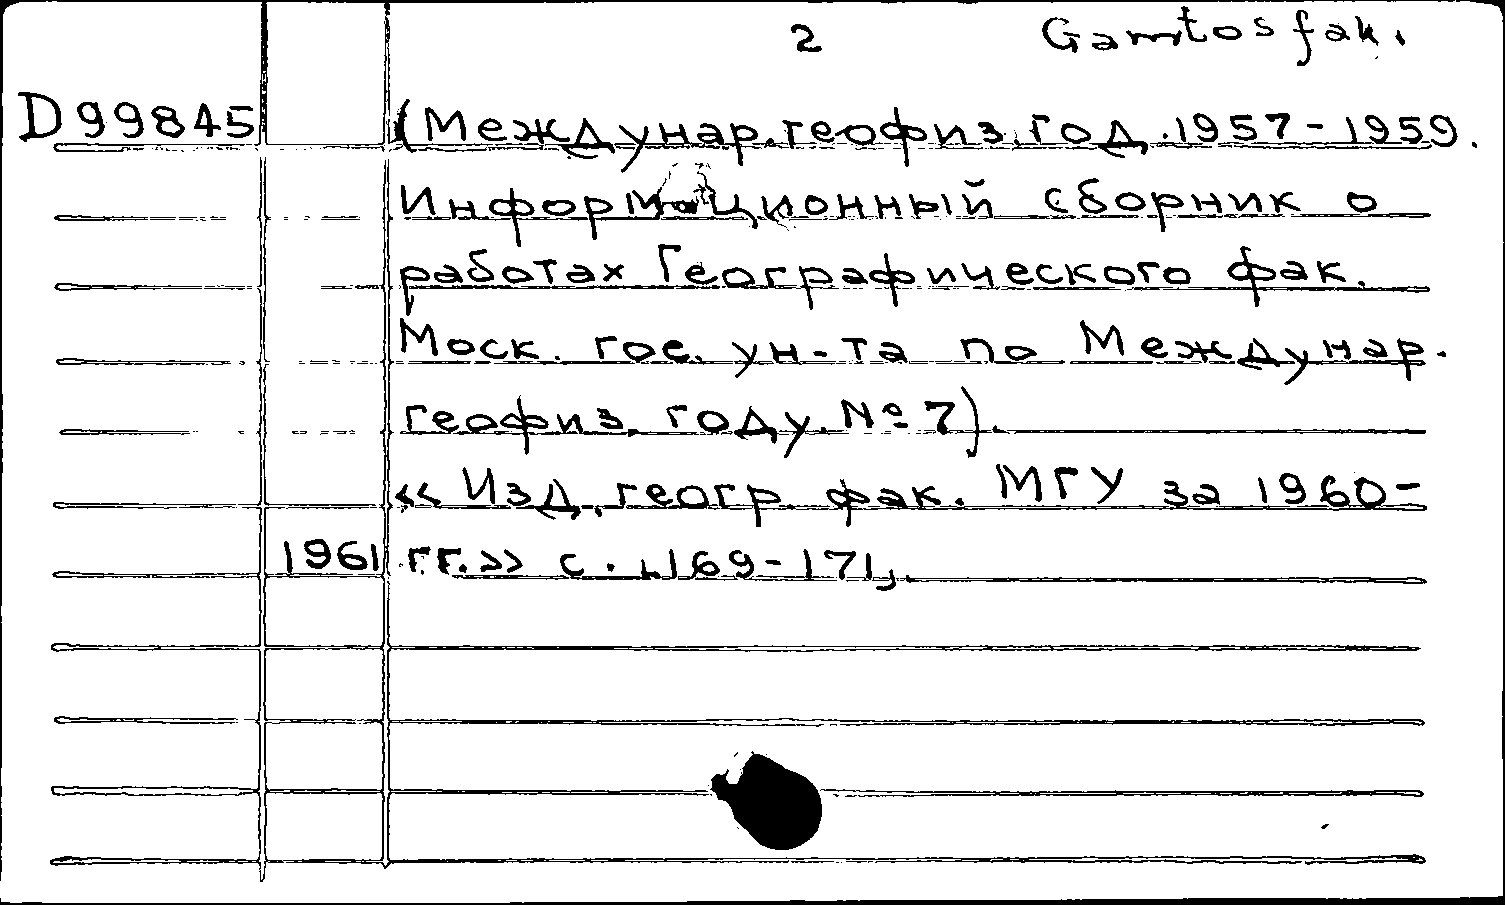 2 Gamtos fak.
D99845 (Междунар. геофиз. год. 1957-1959.
Информационный сборник о
работах Географического фак.
Моск. гос. ун-та по Междунар.
геофиз. году. № 7).
« Изд. геогр. фак. МГУ за 1960-
1961 гг.» с. 169-171,.